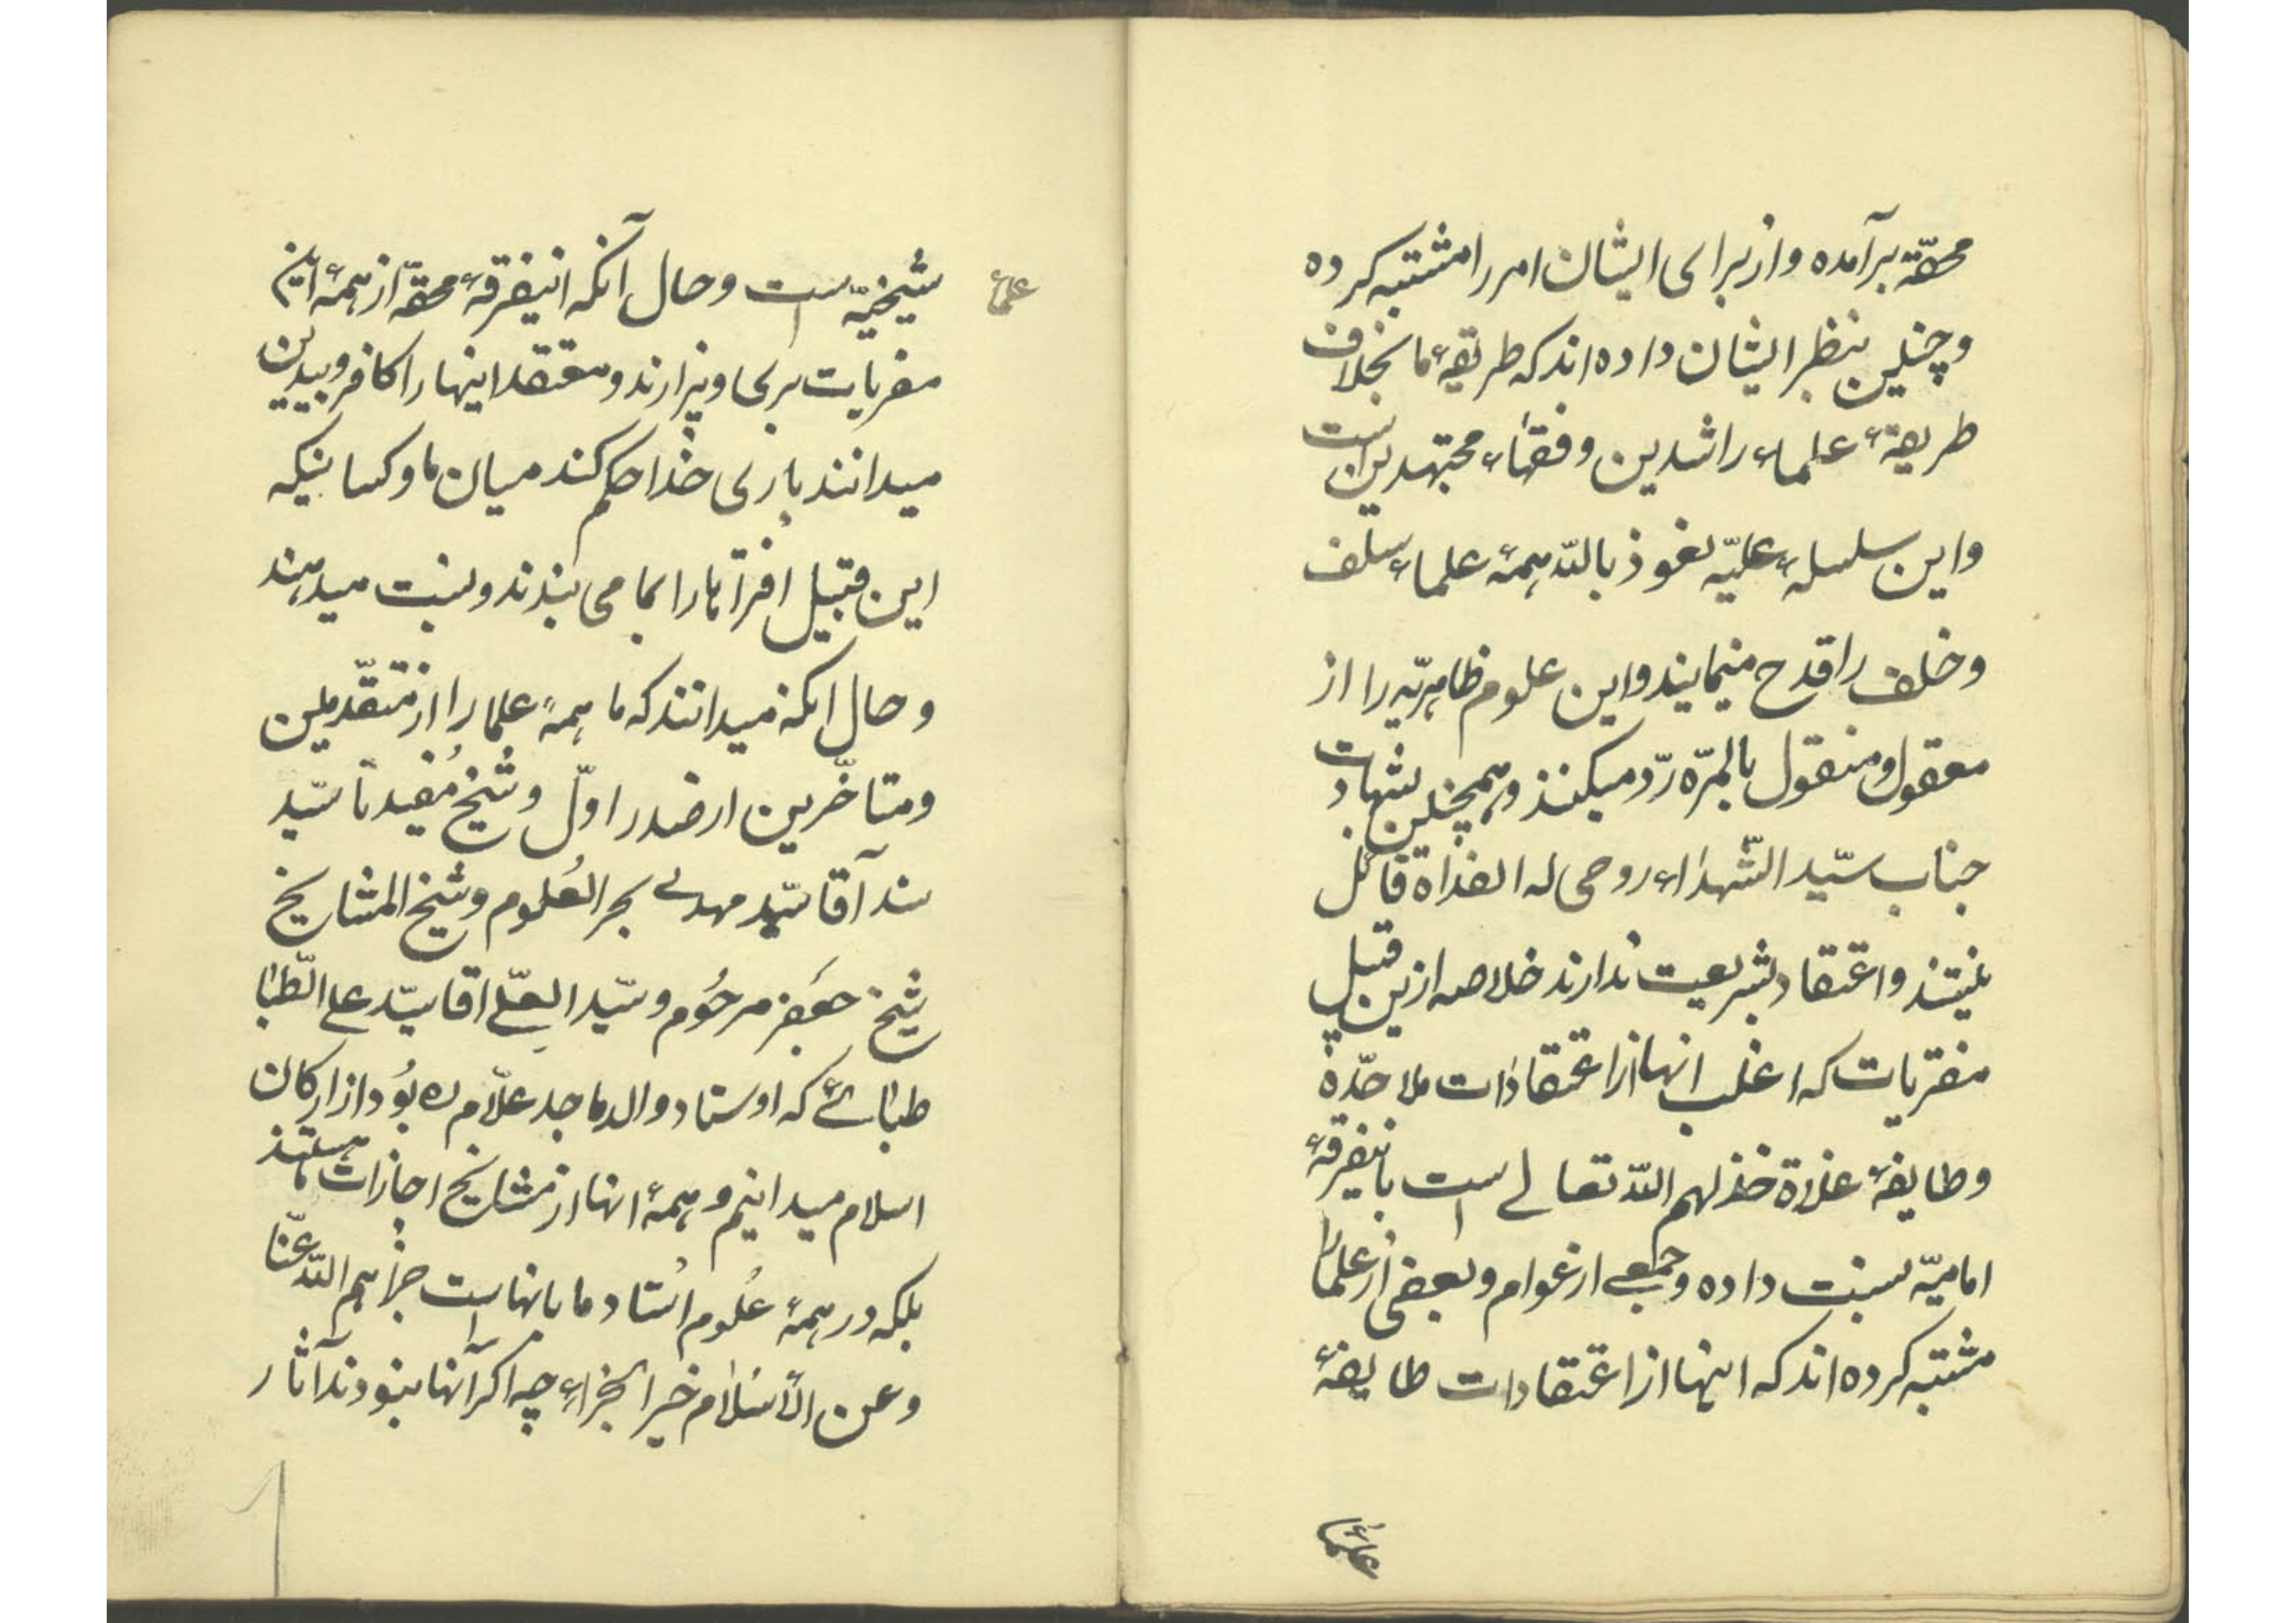 محقّه برآمده و از برای ایشان امر را مشتبه کرده
و چنین بنظر ایشان داده اند که طریقهٔ ما بخلاف
طریقهٔ علماء راشدین و فقهاء مجتهدین است
و این سلسلهٔ علیّه نعوذ باللّه همهٔ علماء سلف
و خلف را قدح مینمایند و این علوم ظاهریّه را از
معقول و منقول بالمرّه ردّ میکنند و همچنین بشهادت
جناب سیّد الشّهداء روحی له الفداه قائل
نیستند و اعتقاد بشریعت ندارند خلاصه ازین قبیل
مفتریات که اغلب انها از اعتقادات ملاحدّه
و طایفهٔ غلاة خذلهم اللّه تعالی است باینفرقهٔ
امامیّه نسبت داده و جمعی از عوام و بعضی از علما را
مشتبه کرده اند که اینها از اعتقادات طایفهٔ
شیخیّه است و حال آنکه اینفرقهٔ محقّه از همهٔ این
مفریات بری و بیزارند و معتقد اینها را کافر و بیدین
میدانند باری خدا حکم کند میان ما و کسانیکه
این قبیل افتراها را بما می بندند و نسبت میدهند
و حال انکه میدانند که ما همهٔ علما را از متقدّمین
و متاخّرین از صدر اوّل و شیخ مُفید تا سیّد
سند آقا سیّد مهدی بحر العُلوم و شیخ المشایخ
شیخ جعفر مرحُوم و سیّد العلی اقا سیّد علی الطّبا
طبائی که اوستاد والد ماجد علّام ره بُود از ارکان
اسلام میدانیم و همهٔ انها از مشایخ اجازات ما هستند
بلکه در همهٔ عُلوم اُستاد ما بانهاست جزاهم اللّه عنّا
و عن الأسلام خیر الجزاء چه اگر آنها نبودند آثار